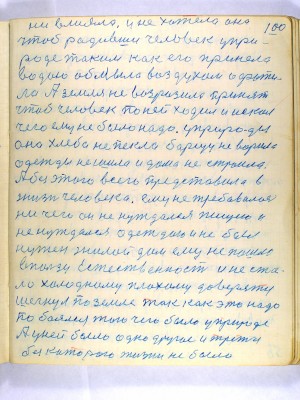 ни влияла, и не хотела она 100
чтоб родивши человек упри
роде таким как его приняла
водою обмыла воздухом
ла А земля не возразила принять
чтоб человек по ней ходил и искал
чего ему не было надо. у природы
она хлеба не пекла борщу не варила
одежды не шила и дома не строила.
А без этого всего представила в
жизнь человека. ему не требовалося
ни чего он не нуждался пищею и
не нуждался одеждою и не был
нужен жилой дом ему не пошло
в пользу Естественность и не ста
ло холодному плохому доверяти
шегнул по земле так как это надо
по боялся того чего было у природе
А у ней было одно другое и третье
без которого жизни не было